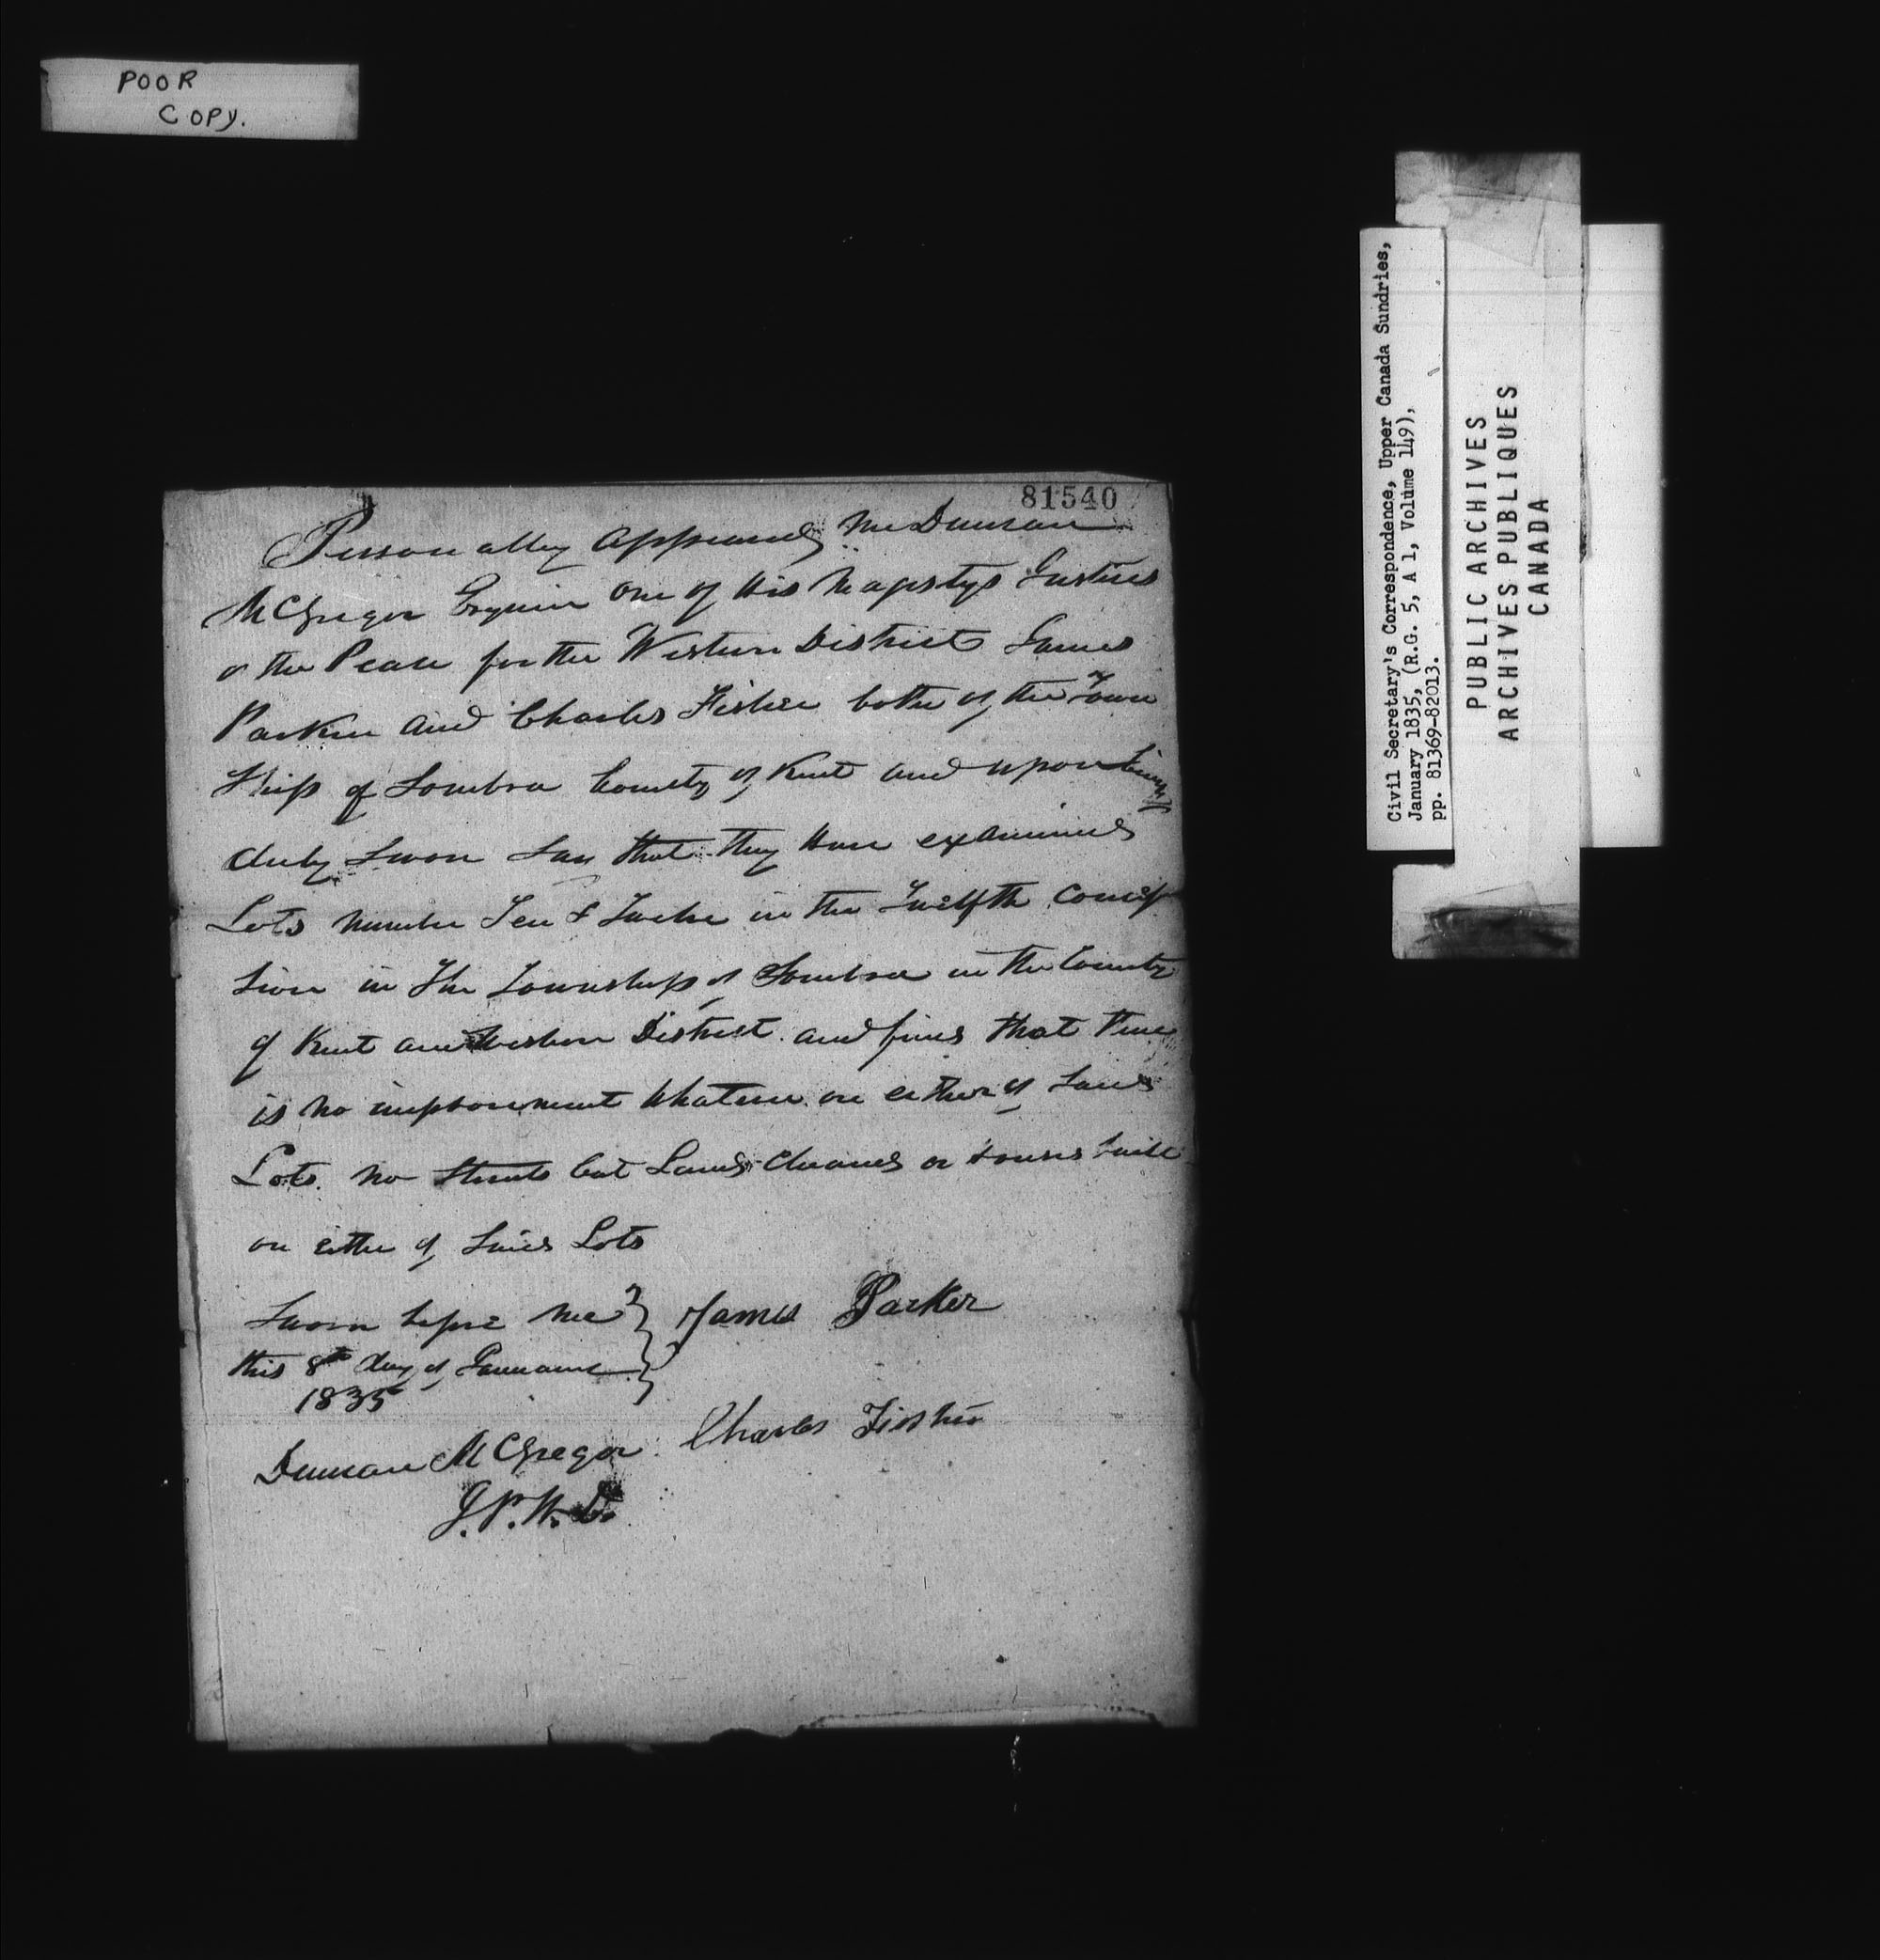 POOR
COPY.
81540
Personally Appeared Me Duncan
McGregor Esquire One of His Majestys Justices
o the Peace for the Western District James
Parker and Charles Fisher both of the Town
Ship of Sombra County of Kent and upon being
duly Sworn Say that they Have examined
Lots number Ten & Twelve in the Twelfth Conces
sion in The Township of Sombra in the County
of Kent and Western District and finds that there
is no improvement Whatever on either of Said
Lots no Streets Cut Lands Cleared or Houses built
on either of Said Lots
Sworn before Me
this 8th day of January
1835
James Parker
Charles Fisher
Duncan McGregor
J.P.W.D.
Civil Secretary's Correspondence, Upper Canada Sundries,
January 1835, (R.G. 5, A 1, Volume 149),
pp. 81369-82013.
PUBLIC ARCHIVES
ARCHIVES PUBLIQUES
CANADA